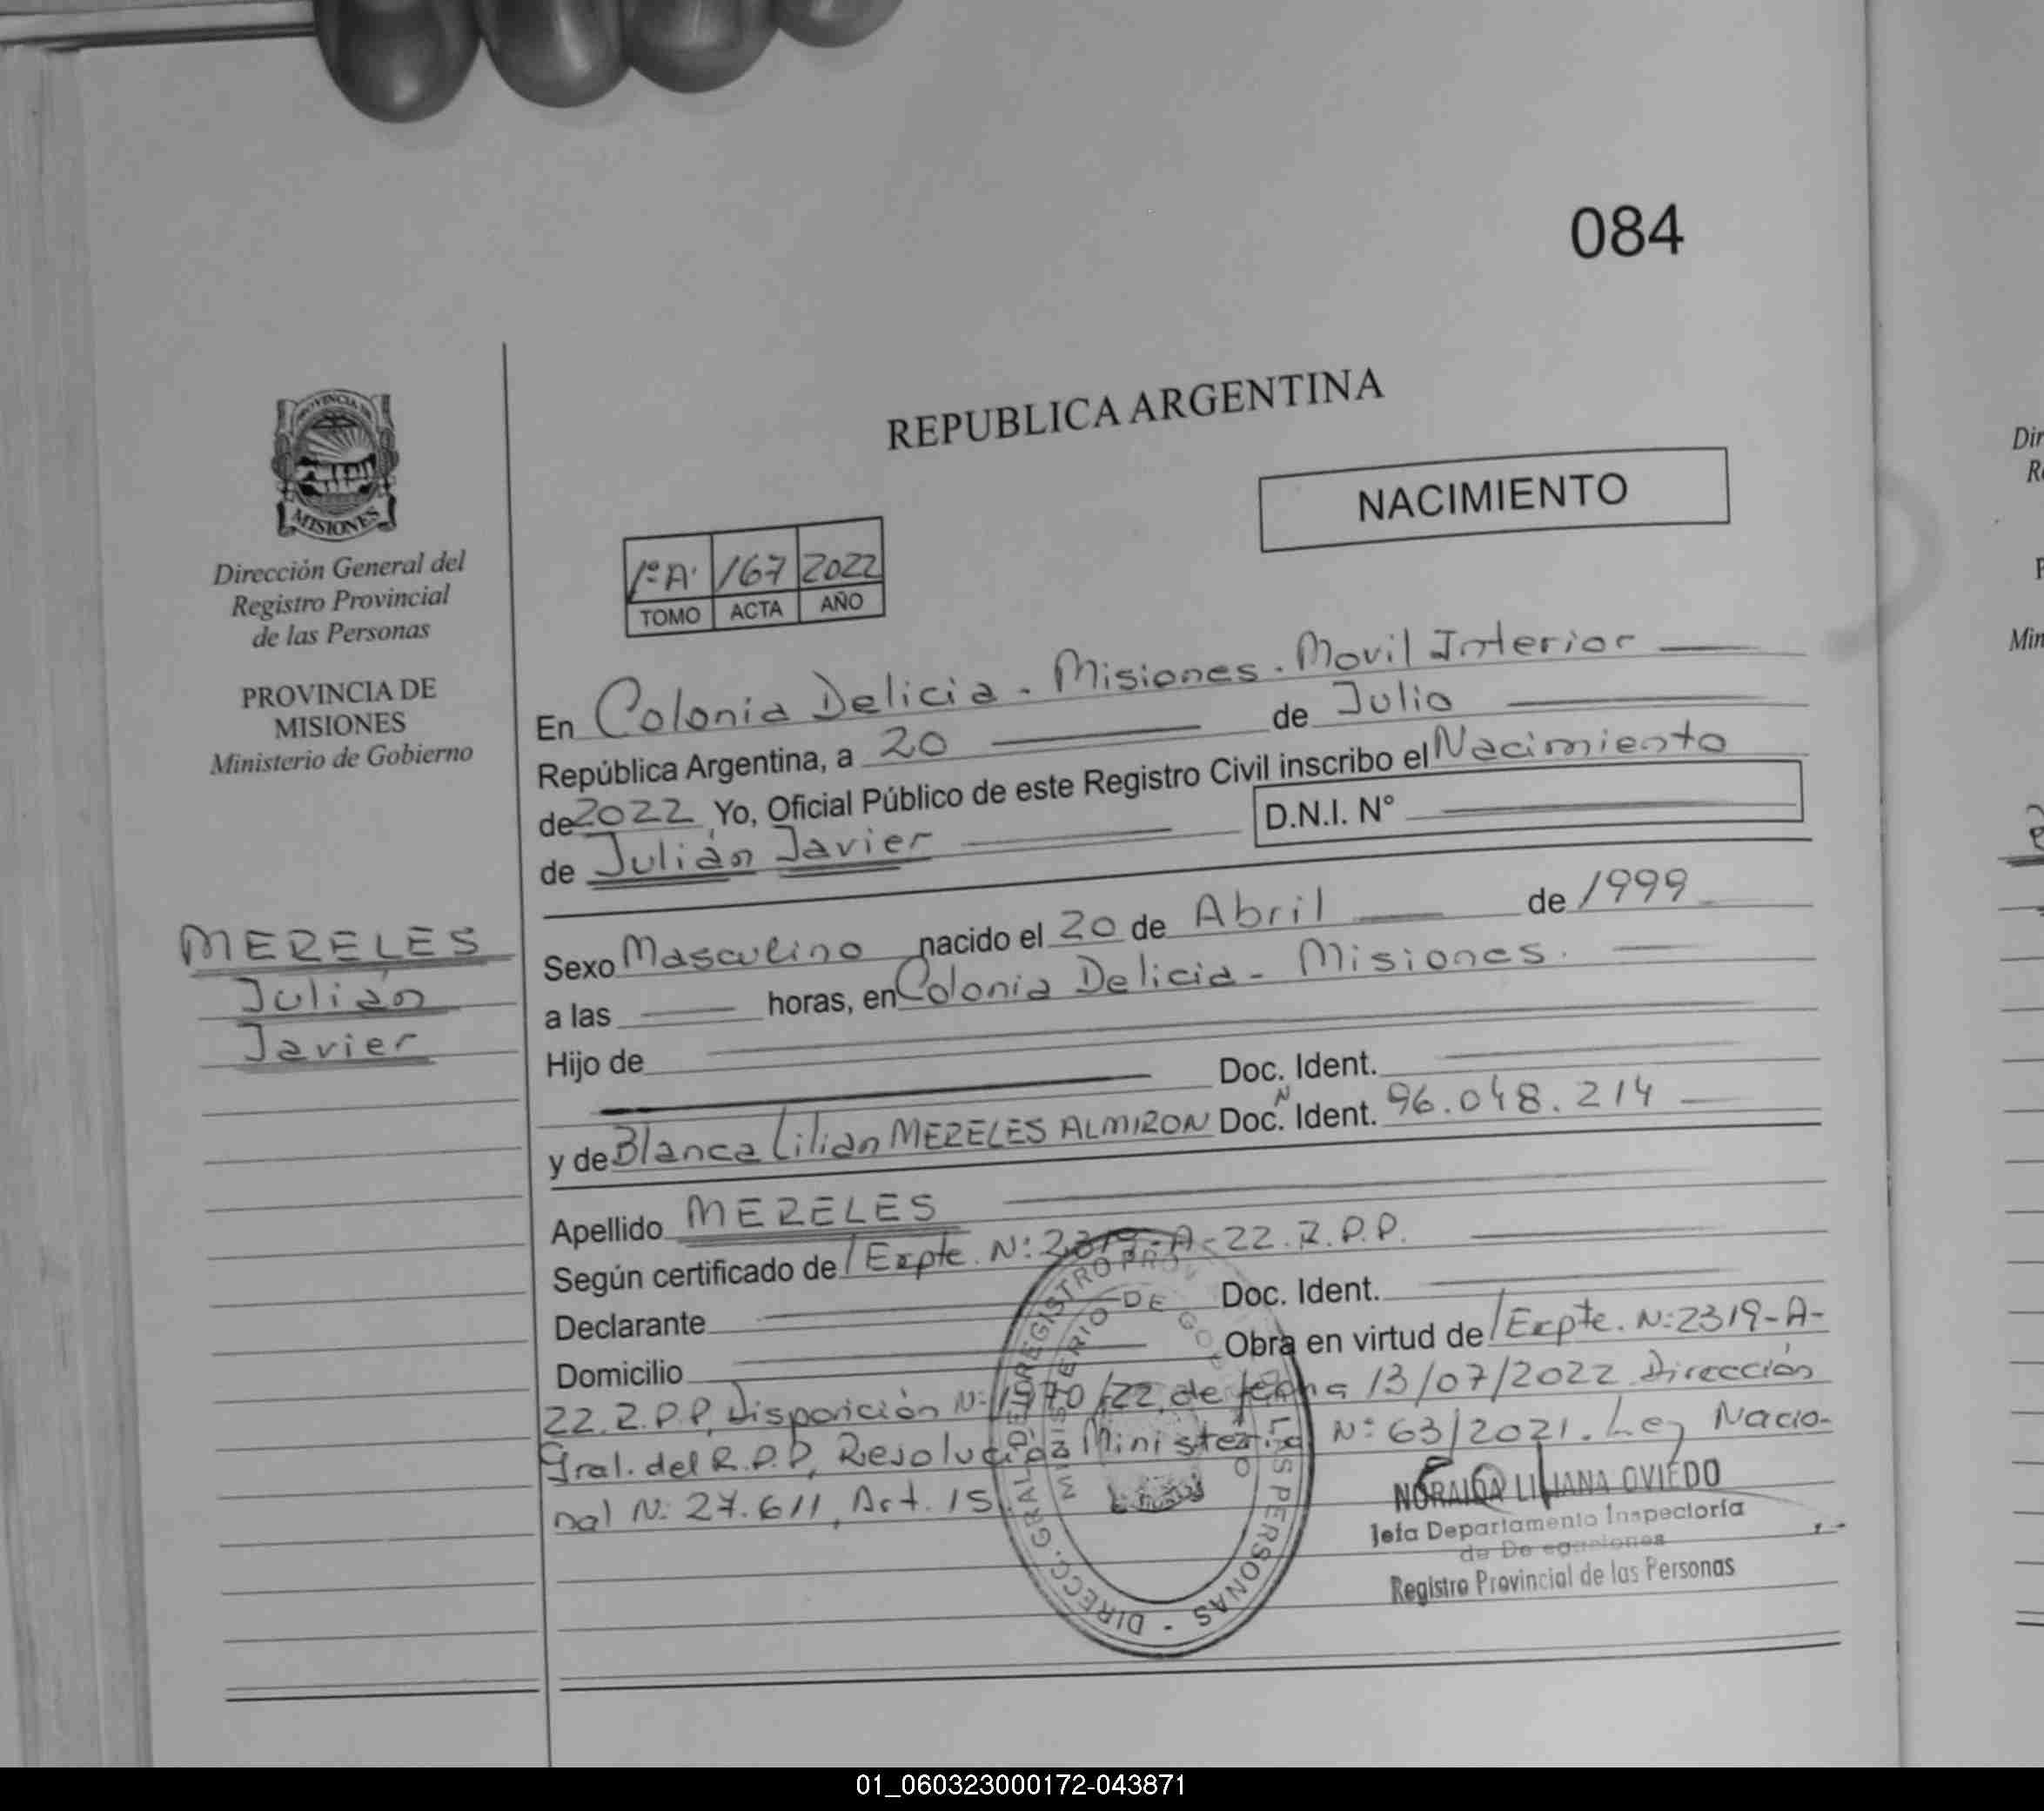 084
PROVINCIA DE
MISIONES
Dirección General del
Registro Provincial
de las Personas
PROVINCIA DE
MISIONES
Ministerio de Gobierno
MERELES
Julián
Javier
REPUBLICA ARGENTINA
NACIMIENTO
1º A 167 2022
TOMO ACTA AÑO
En Colonia Delicia - Misiones. Movil Interior
República Argentina, a 20 de Julio
de 2022 Yo, Oficial Público de este Registro Civil inscribo el Nacimiento
de Julián Javier D.N.I. N°
Sexo Masculino nacido el 20 de Abril de 1999
a las horas, en Colonia Delicia - Misiones.
Hijo de
Doc. Ident.
y de Blanca Lilian MERELES ALMIRON Doc. N Ident. 96.048.214
Apellido MERELES
Según certificado de/Expte. N: 2319-A-22.R.P.P.
Declarante Doc. Ident.
Domicilio Obra en virtud de/Expte. N: 2319-A-
22.R.P.P, Disposición N: 1970/22, de fecha 13/07/2022 Dirección
Gral. del R.P.P, Resolución Ministerial N: 63/2021. Ley Nacio-
nal N: 27.611, Art. 15.
DIRECC. GRAL DEL REGISTRO PROV PERSONAS -
MINISTERIO DE GO
NORAIDA LILIANA OVIEDO
Jefa Departamento Inspectoría
de Delegaciones
Registro Provincial de las Personas
Dir
R
P
Min
01_060323000172-043871